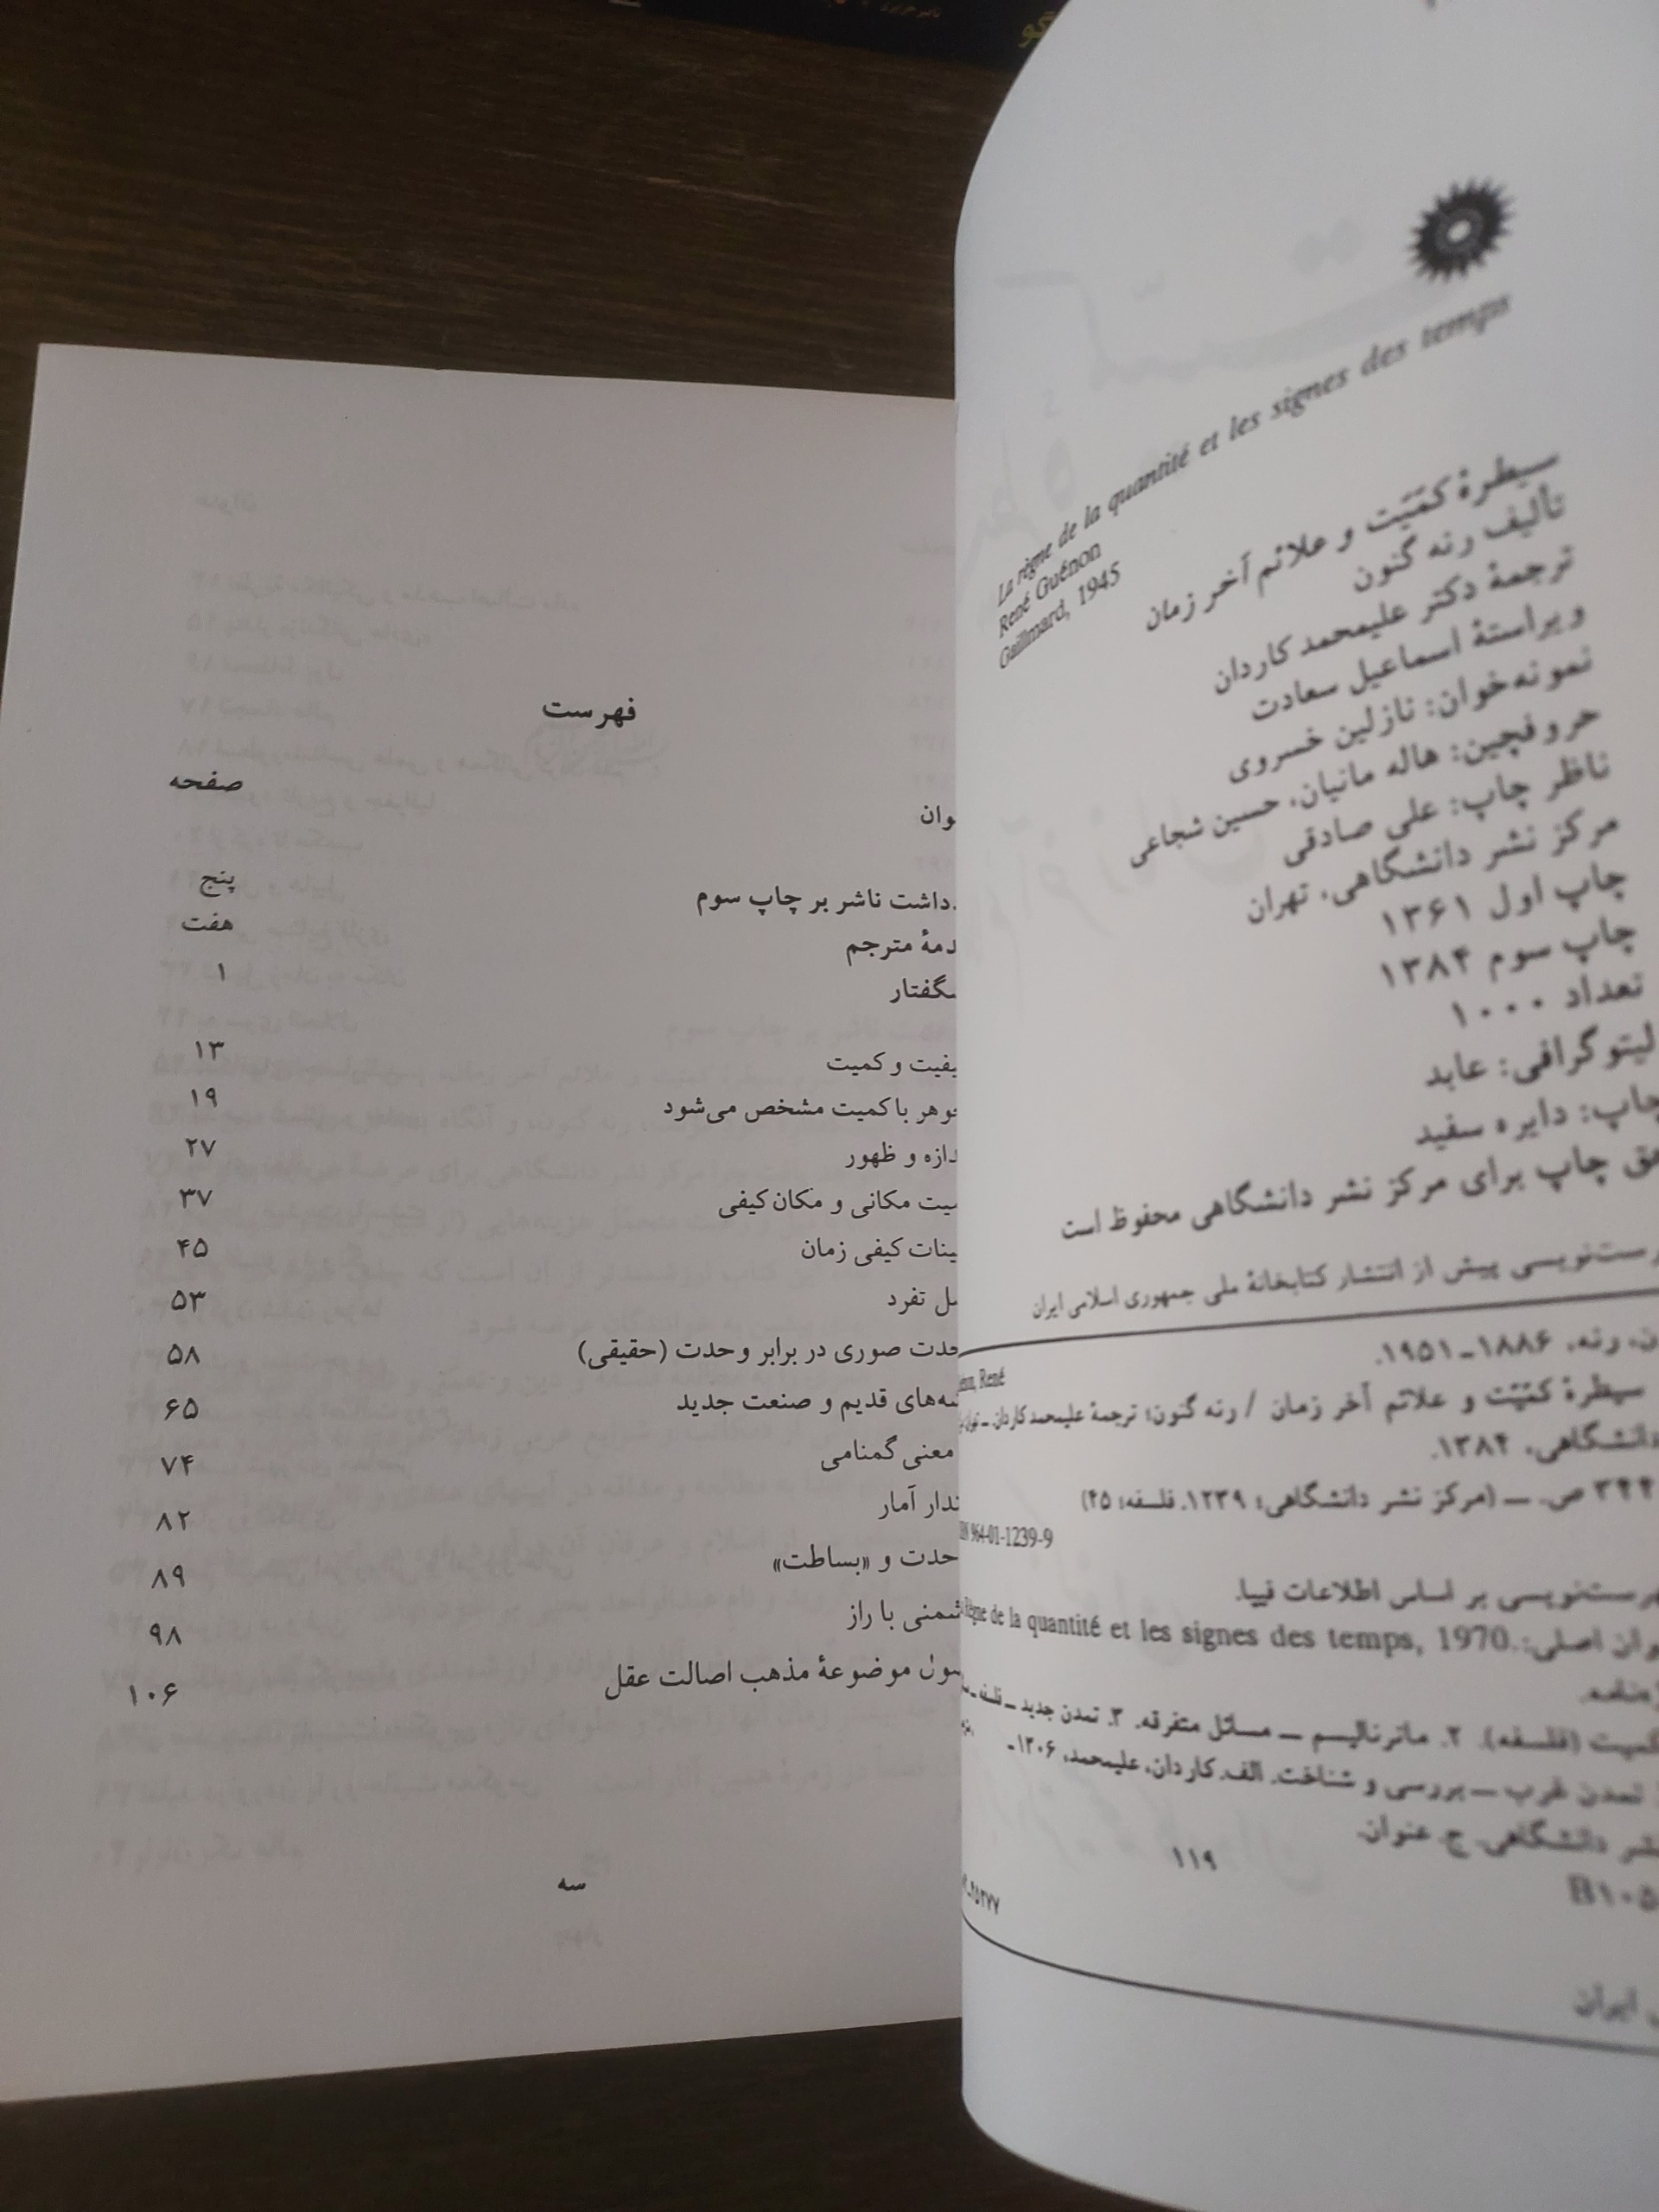 La règne de la quantité et les signes des temps
René Guénon
Gaillmard, 1945
سیطرهٔ کمّیّت و علائم آخر زمان
تألیف رنه گنون
ترجمهٔ دکتر علیمحمد کاردان
ویراستهٔ اسماعیل سعادت
نمونه‌خوان: نازلین خسروی
حروفچین: هاله مانیان، حسین شجاعی
ناظر چاپ: علی صادقی
مرکز نشر دانشگاهی، تهران
چاپ اول ۱۳۶۱
چاپ سوم ۱۳۸۴
تعداد ۱۰۰۰
لیتوگرافی: عابد
چاپ: دایره سفید
حق چاپ برای مرکز نشر دانشگاهی محفوظ است
رست‌نویسی پیش از انتشار کتابخانهٔ ملی جمهوری اسلامی ایران
ن، رنه، ۱۸۸۶ـ۱۹۵۱.
René
سیطرهٔ کمّیّت و علائم آخر زمان / رنه گنون؛ ترجمهٔ علیمحمد کاردان ـ
دانشگاهی، ۱۳۸۴.
۳۴۴ ص. ـ (مرکز نشر دانشگاهی؛ ۱۲۳۹. فلسفه؛ ۴۵)
964-01-1239-9
هرست‌نویسی بر اساس اطلاعات فیپا.
وان اصلی: de la quantité et les signes des temps, 1970.
کمیت (فلسفه). ۲. ماتریالیسم ـ مسائل متفرقه. ۳. تمدن جدید ـ فلسفه
تمدن غرب ـ بررسی و شناخت. الف. کاردان، علیمحمد، ۱۳۰۶ـ
نشر دانشگاهی. ج. عنوان.
۱۱۹
B۱۰۵
ایران
فهرست
وان صفحه
دداشت ناشر بر چاپ سوم پنج
دمهٔ مترجم هفت
شگفتار ۱
یفیت و کمیت ۱۳
جوهر با کمیت مشخص می‌شود ۱۹
دازه و ظهور ۲۷
میت مکانی و مکان کیفی ۳۷
ینات کیفی زمان ۴۵
صل تفرد ۵۳
حدت صوری در برابر وحدت (حقیقی) ۵۸
شه‌های قدیم و صنعت جدید ۶۵
معنی گمنامی ۷۴
ندار آمار ۸۲
حدت و «بساطت» ۸۹
شمنی با راز ۹۸
سون موضوعهٔ مذهب اصالت عقل ۱۰۶
سه